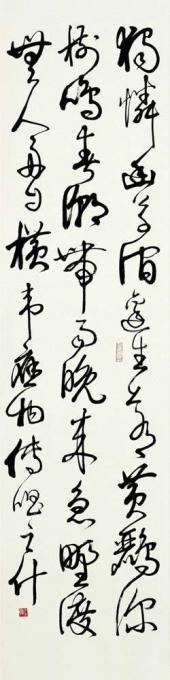 獨憐幽草澗邊生上有黄鸝深
樹鳴春潮帶雨晚来急野渡
無人舟自橫韦應物傳唱之什